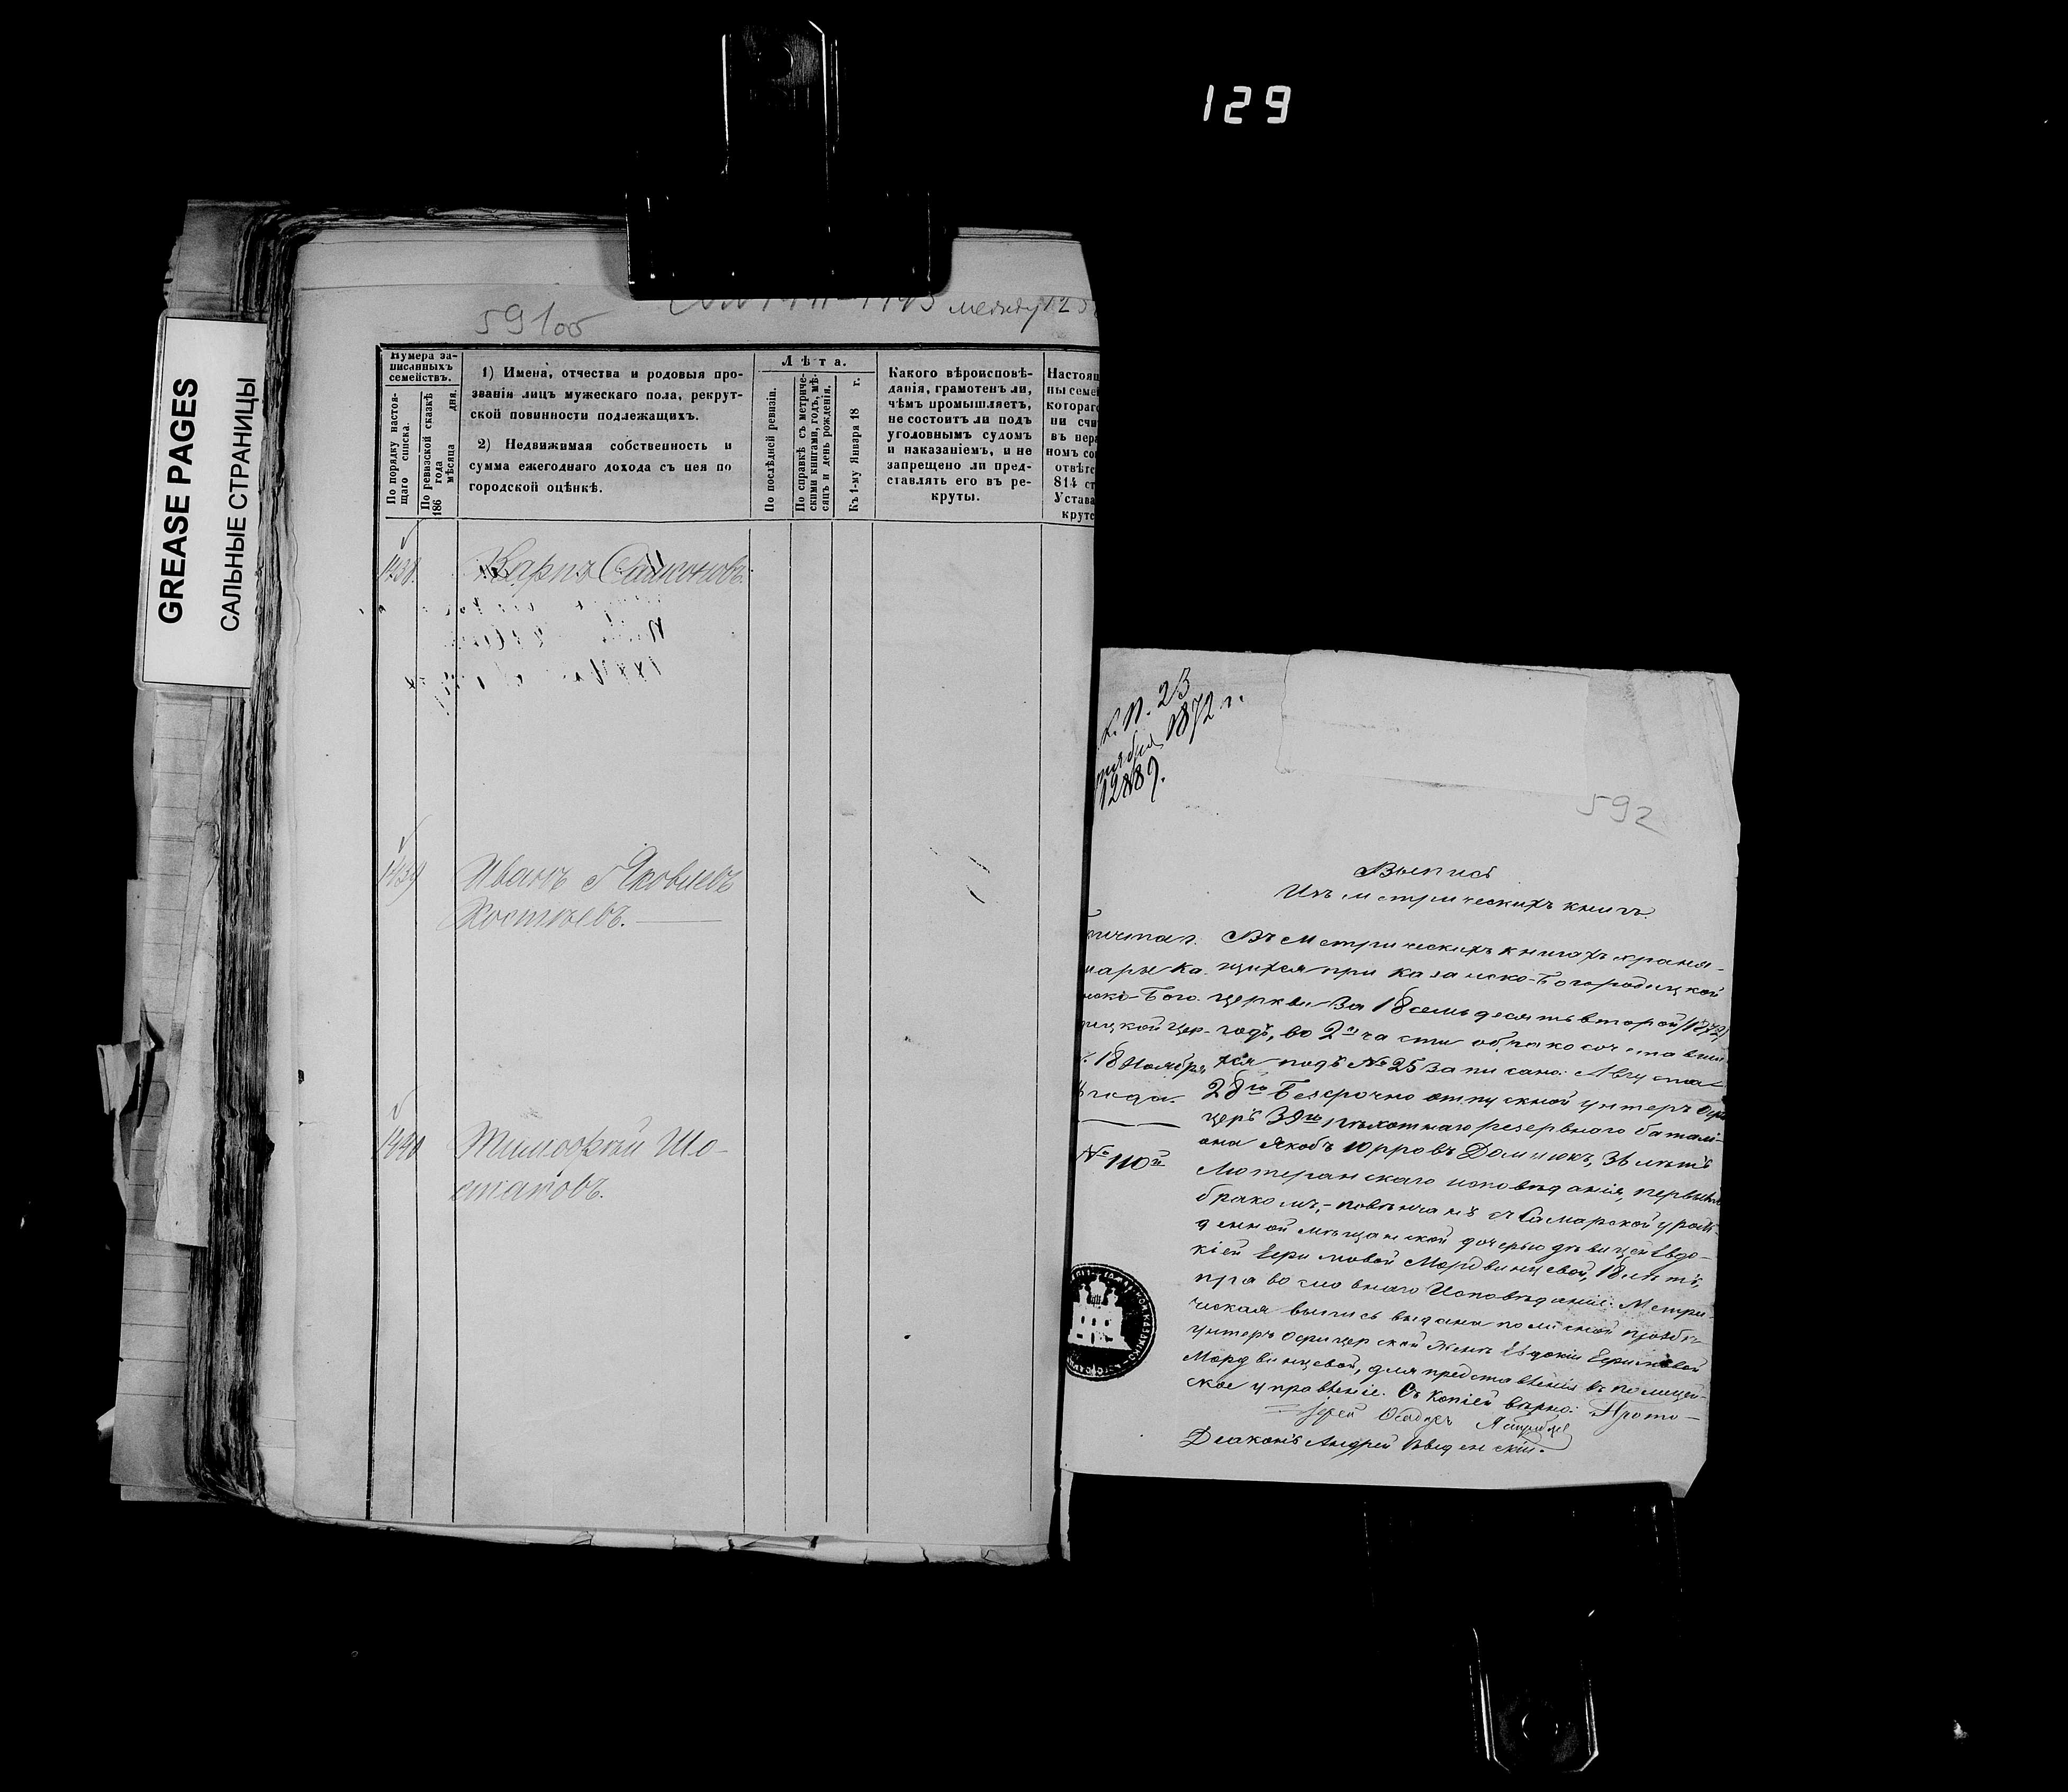 129
GREASE PAGES
САЛЬНЫЕ СТРАНИЦЫ
591об
между 125
Нумера за-
писанныхъ
семействъ.
По порядку настоя-
щаго списка.
По ревизской сказкѣ
186 года
мѣсяца дня.
1) Имена, отчества и родовыя про-
званія лицъ мужескаго пола, рекрут-
ской повинности подлежащихъ.
2) Недвижимая собственность и
сумма ежегоднаго дохода съ нея по
городской оцѣнкѣ.
Лѣта.
По послѣдней ревизіи.
По справкѣ съ метриче-
скими книгами, годъ, мѣ-
сяцъ и день рожденія.
Къ 1-му Января 18 г.
Какого вѣроисповѣ-
данія, грамотенъ ли,
чѣмъ промышляетъ,
не состоитъ ли подъ
уголовнымъ судомъ
и наказаніемъ, и не
запрещено ли пред-
ставлять его въ ре-
круты.
Настоящ
ны семе
котораг
ни счи
въ пер
номъ со
отвѣтс
814 ст
Устава
крутс
1438. Карпъ
1439 Иванъ Яковлевъ
1440 Тимофей Шо-
стаковъ.
К. П. 23
ября 1872 г.
12889.
592
Выпись
Изъ метрическихъ книгъ.
Въ метрическихъ книгахъ храня-
щихся при казанско-Богородицкой
церкви за 18семьдесятъ второй /1872/
годъ, во 2й части объ бракосочетавши
хся подъ № 25 записано: Августа
28го Безсрочно отпускной унтеръ офи
церъ 39го пѣхотнаго резервнаго батал-
она Якобъ Юрровъ Домнюкъ, 36 лѣтъ
Лютеранскаго исповѣданія, первымъ
бракомъ,- повѣнчанъ съ Самарской урож-
денной мѣщанской дочерью дѣвицей Евдо-
кіей Ефимовой Мордвинцевой, 18 лѣтъ,
православнаго Исповѣданія. Метри-
ческая выпись выдана по личной прозьбѣ
унтеръ офицерской женѣ Евдокіи Ефимовой
Мордвинцевой, для представленія въ полицей-
ское управленіе. Съ копіей вѣрно: Прото-
іерей
Діаконъ Андрей Введенскій.
ичтал.
мары Ка.
нско-Бого.
дицкой цер-
18 Ноября
года.
№ 110й